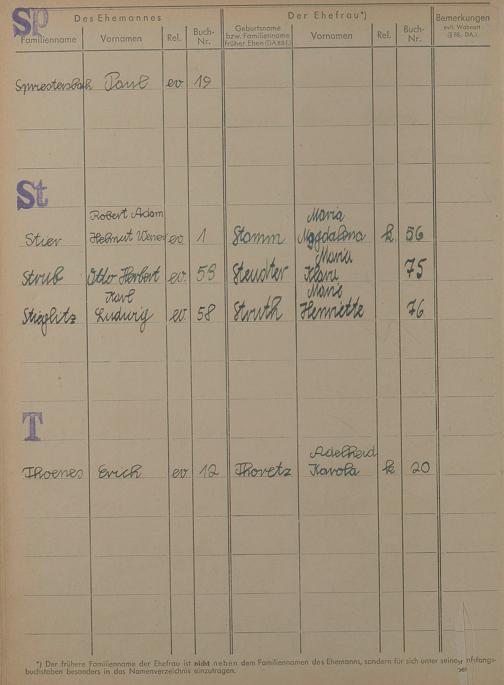 Sp
Des Ehemannes Der Ehefrau*) Bemerkungen
Familienname Vornamen Rel. Buch-Nr. Geburtsname bzw. Familienname früher. Ehen (DA § 81.) Vornamen Rel. Buch-Nr. evtl. Wohnort (§ 88, DA.)
Paul ev 19
St
Robert Adam Maria
Stier Helmut Werner ev 1 Stamm Magdalena k 56
Maria
Strub Otto Herbert ev. 53 Steudter Klara 75
Karl Marie
Stieglitz Ludwig ev. 58 Struth Henriette 76
T
Adelheid
Thoenes Erich ev 12 Thoretz Karola k 20
*) Der frühere Familienname der Ehefrau ist nicht neben dem Familiennamen des Ehemanns, sondern für sich unter seinem Anfangs-
buchstaben besonders in das Namenverzeichnis einzutragen.